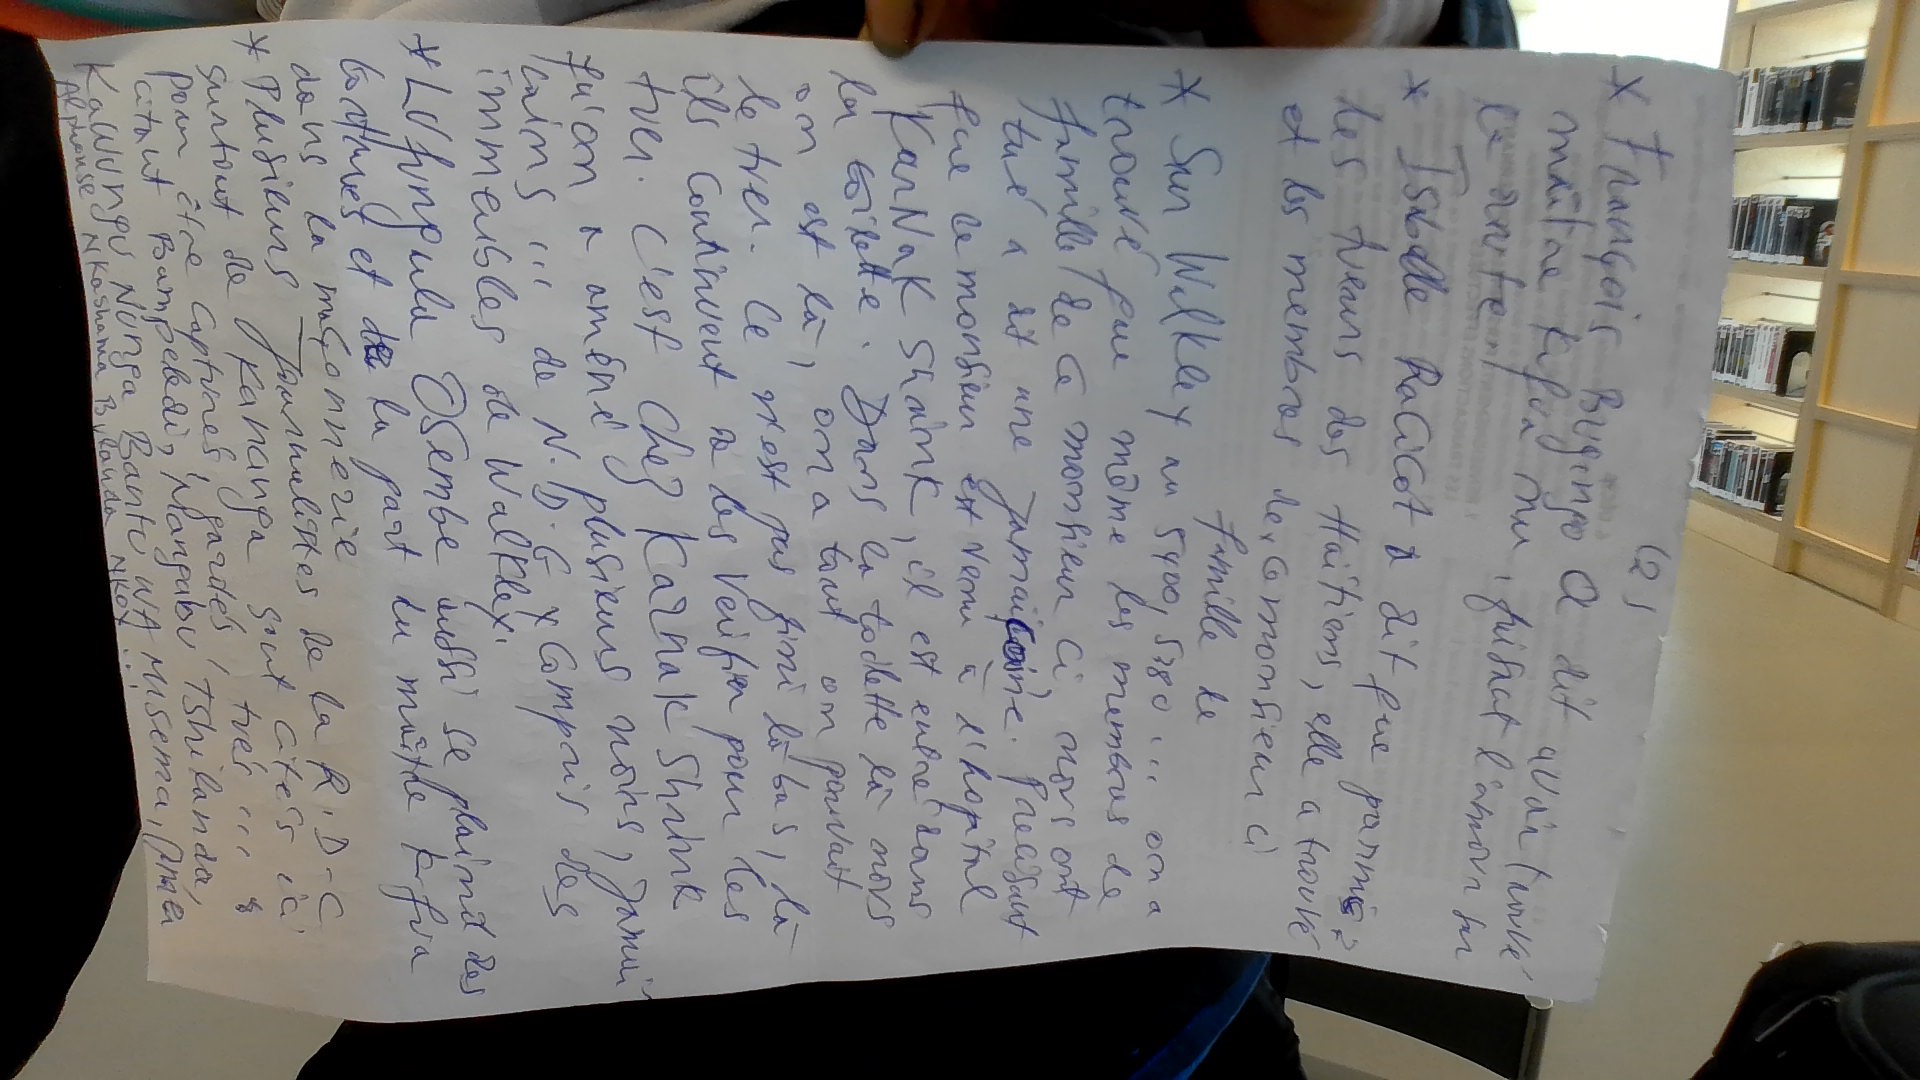 (2)
* François Bugingo a dit avoir trouvé
maître Kafua nu, faisant l'amour sur
* Isabelle Racicot a dit que parmi
les leurs des Haïtiens, elle a trouvé
et les membres de ce monsieur ci
famille de
* Sur Walkley au 5400, 5380 ... on a
trouvé que même les membres de
famille de ce monsieur ci, nous ont
tué a dit une jamaicaine. Precisant
que ce monsieur est venu à l'hopital
Karnak Shrink, il est entré dans
la toilette. Dans la todette là nous
on est là, on a tout on pouvait
le tuer. Ce n'est pas fini là bas, là
ils continuent de les verifier pour les
tuer. C'est chez Karnak Shrink
qu'on a amené plusieurs noirs, jamai
cains ... de N.D.G y compris des
immeubles de Walkley.
* Lufungula Osembe aussi se plaind des
bothes et de la part du maître Kafua
dans la maçonnerie
* Plusieurs Journalistes de la R.D.C
surtout de Kananga sont cités ici
pour être capturés, gardés, tués ...
citant Bampebadi, Mangabu Tshilanda,
Kawunga Nunga Bantu WA Musema,
Alphonse Nkashama